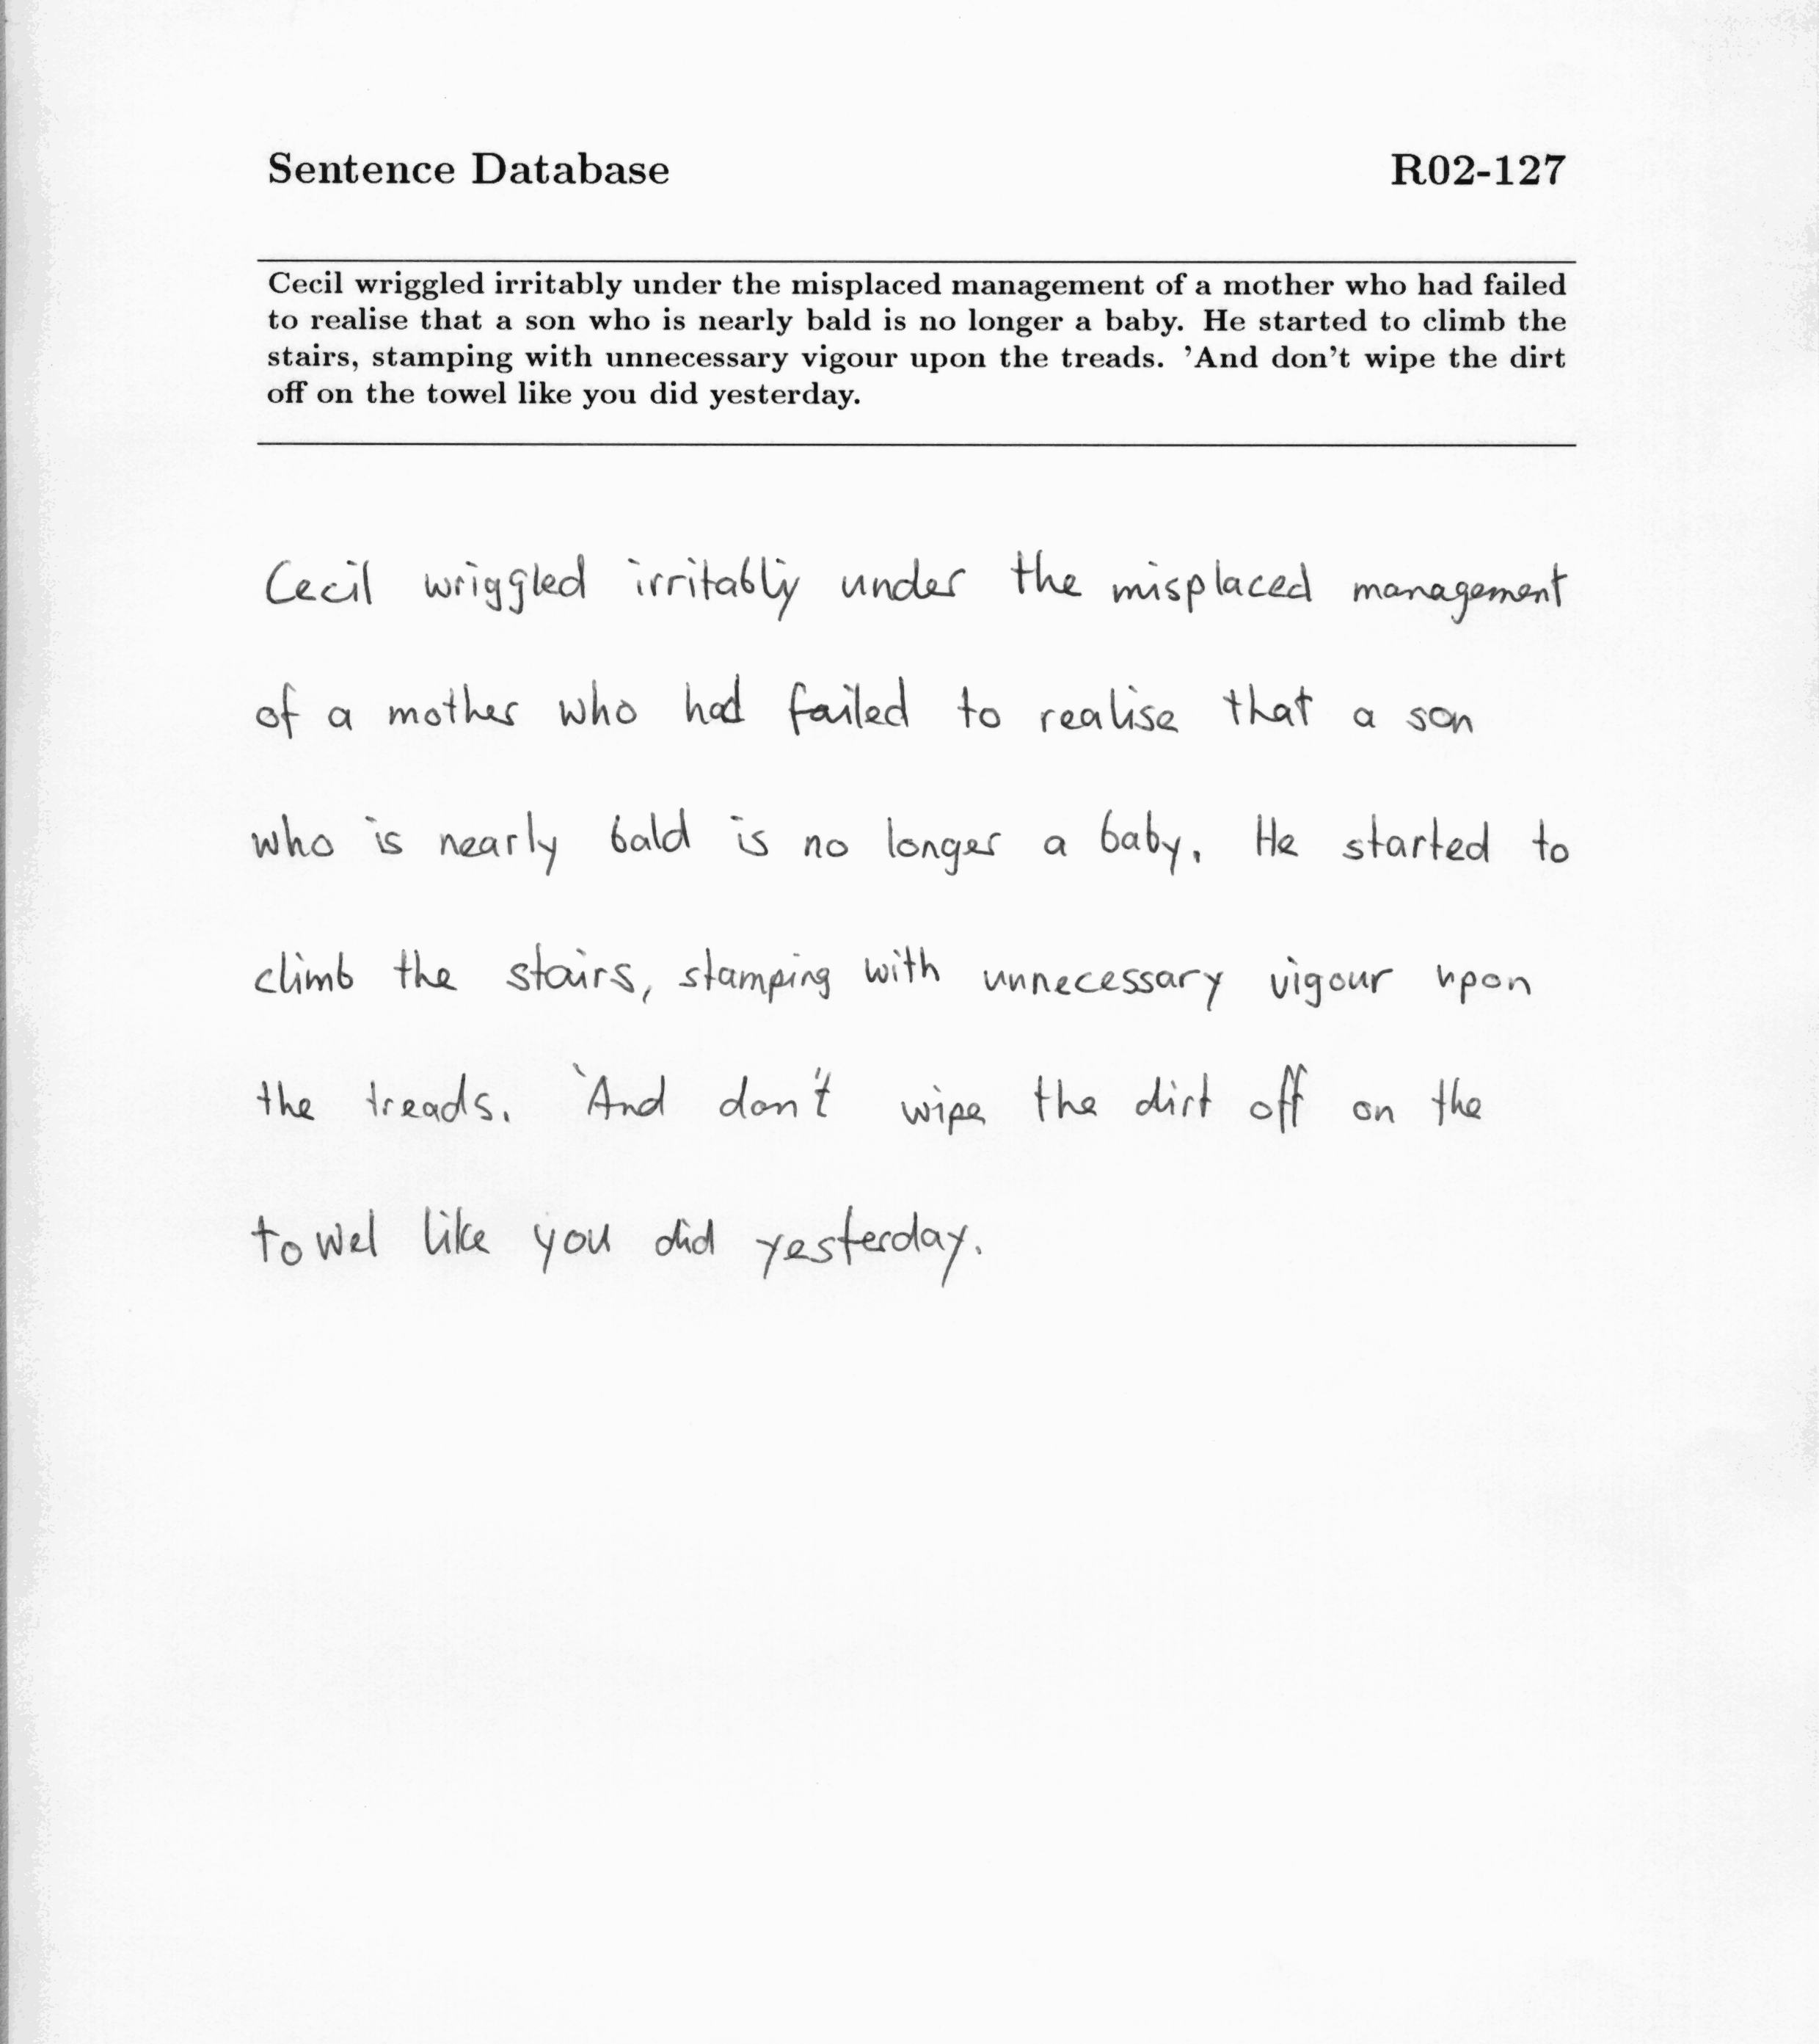 Sentence Database R02-127
Cecil wriggled irritably under the misplaced management of a mother who had failed
to realise that a son who is nearly bald is no longer a baby. He started to climb the
stairs, stamping with unnecessary vigour upon the treads. 'And don't wipe the dirt
off on the towel like you did yesterday.
Cecil wriggled irritably under the misplaced management
of a mother who had failed to realise that a son
who is nearly bald is no longer a baby. He started to
climb the stairs, stamping with unnecessary vigour upon
the treads. 'And don't wipe the dirt off on the
towel like you did yesterday.